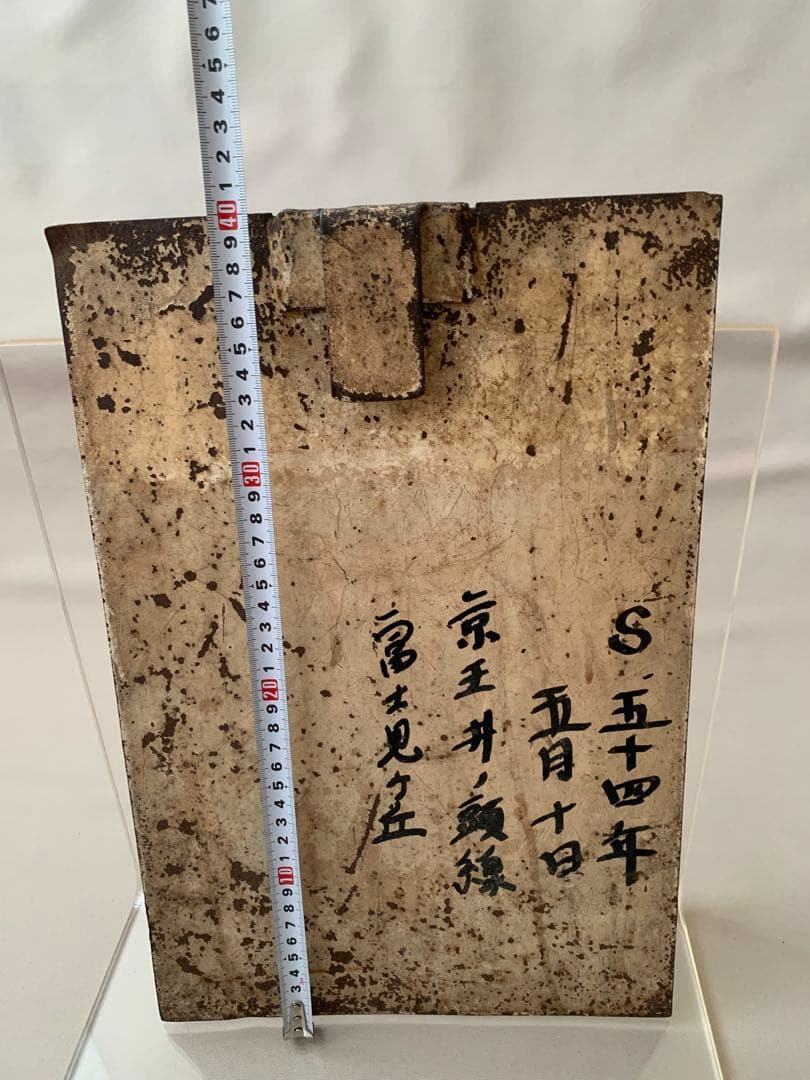 S.五十四年
五月十日
京王井ノ頭線
富士見ケ丘
7
6
5
4
3
2
1
40
9
8
7
6
5
4
3
2
1
30
9
8
7
6
5
4
3
2
1
20
9
8
7
6
5
4
3
2
1
10
9
8
7
6
5
4
3